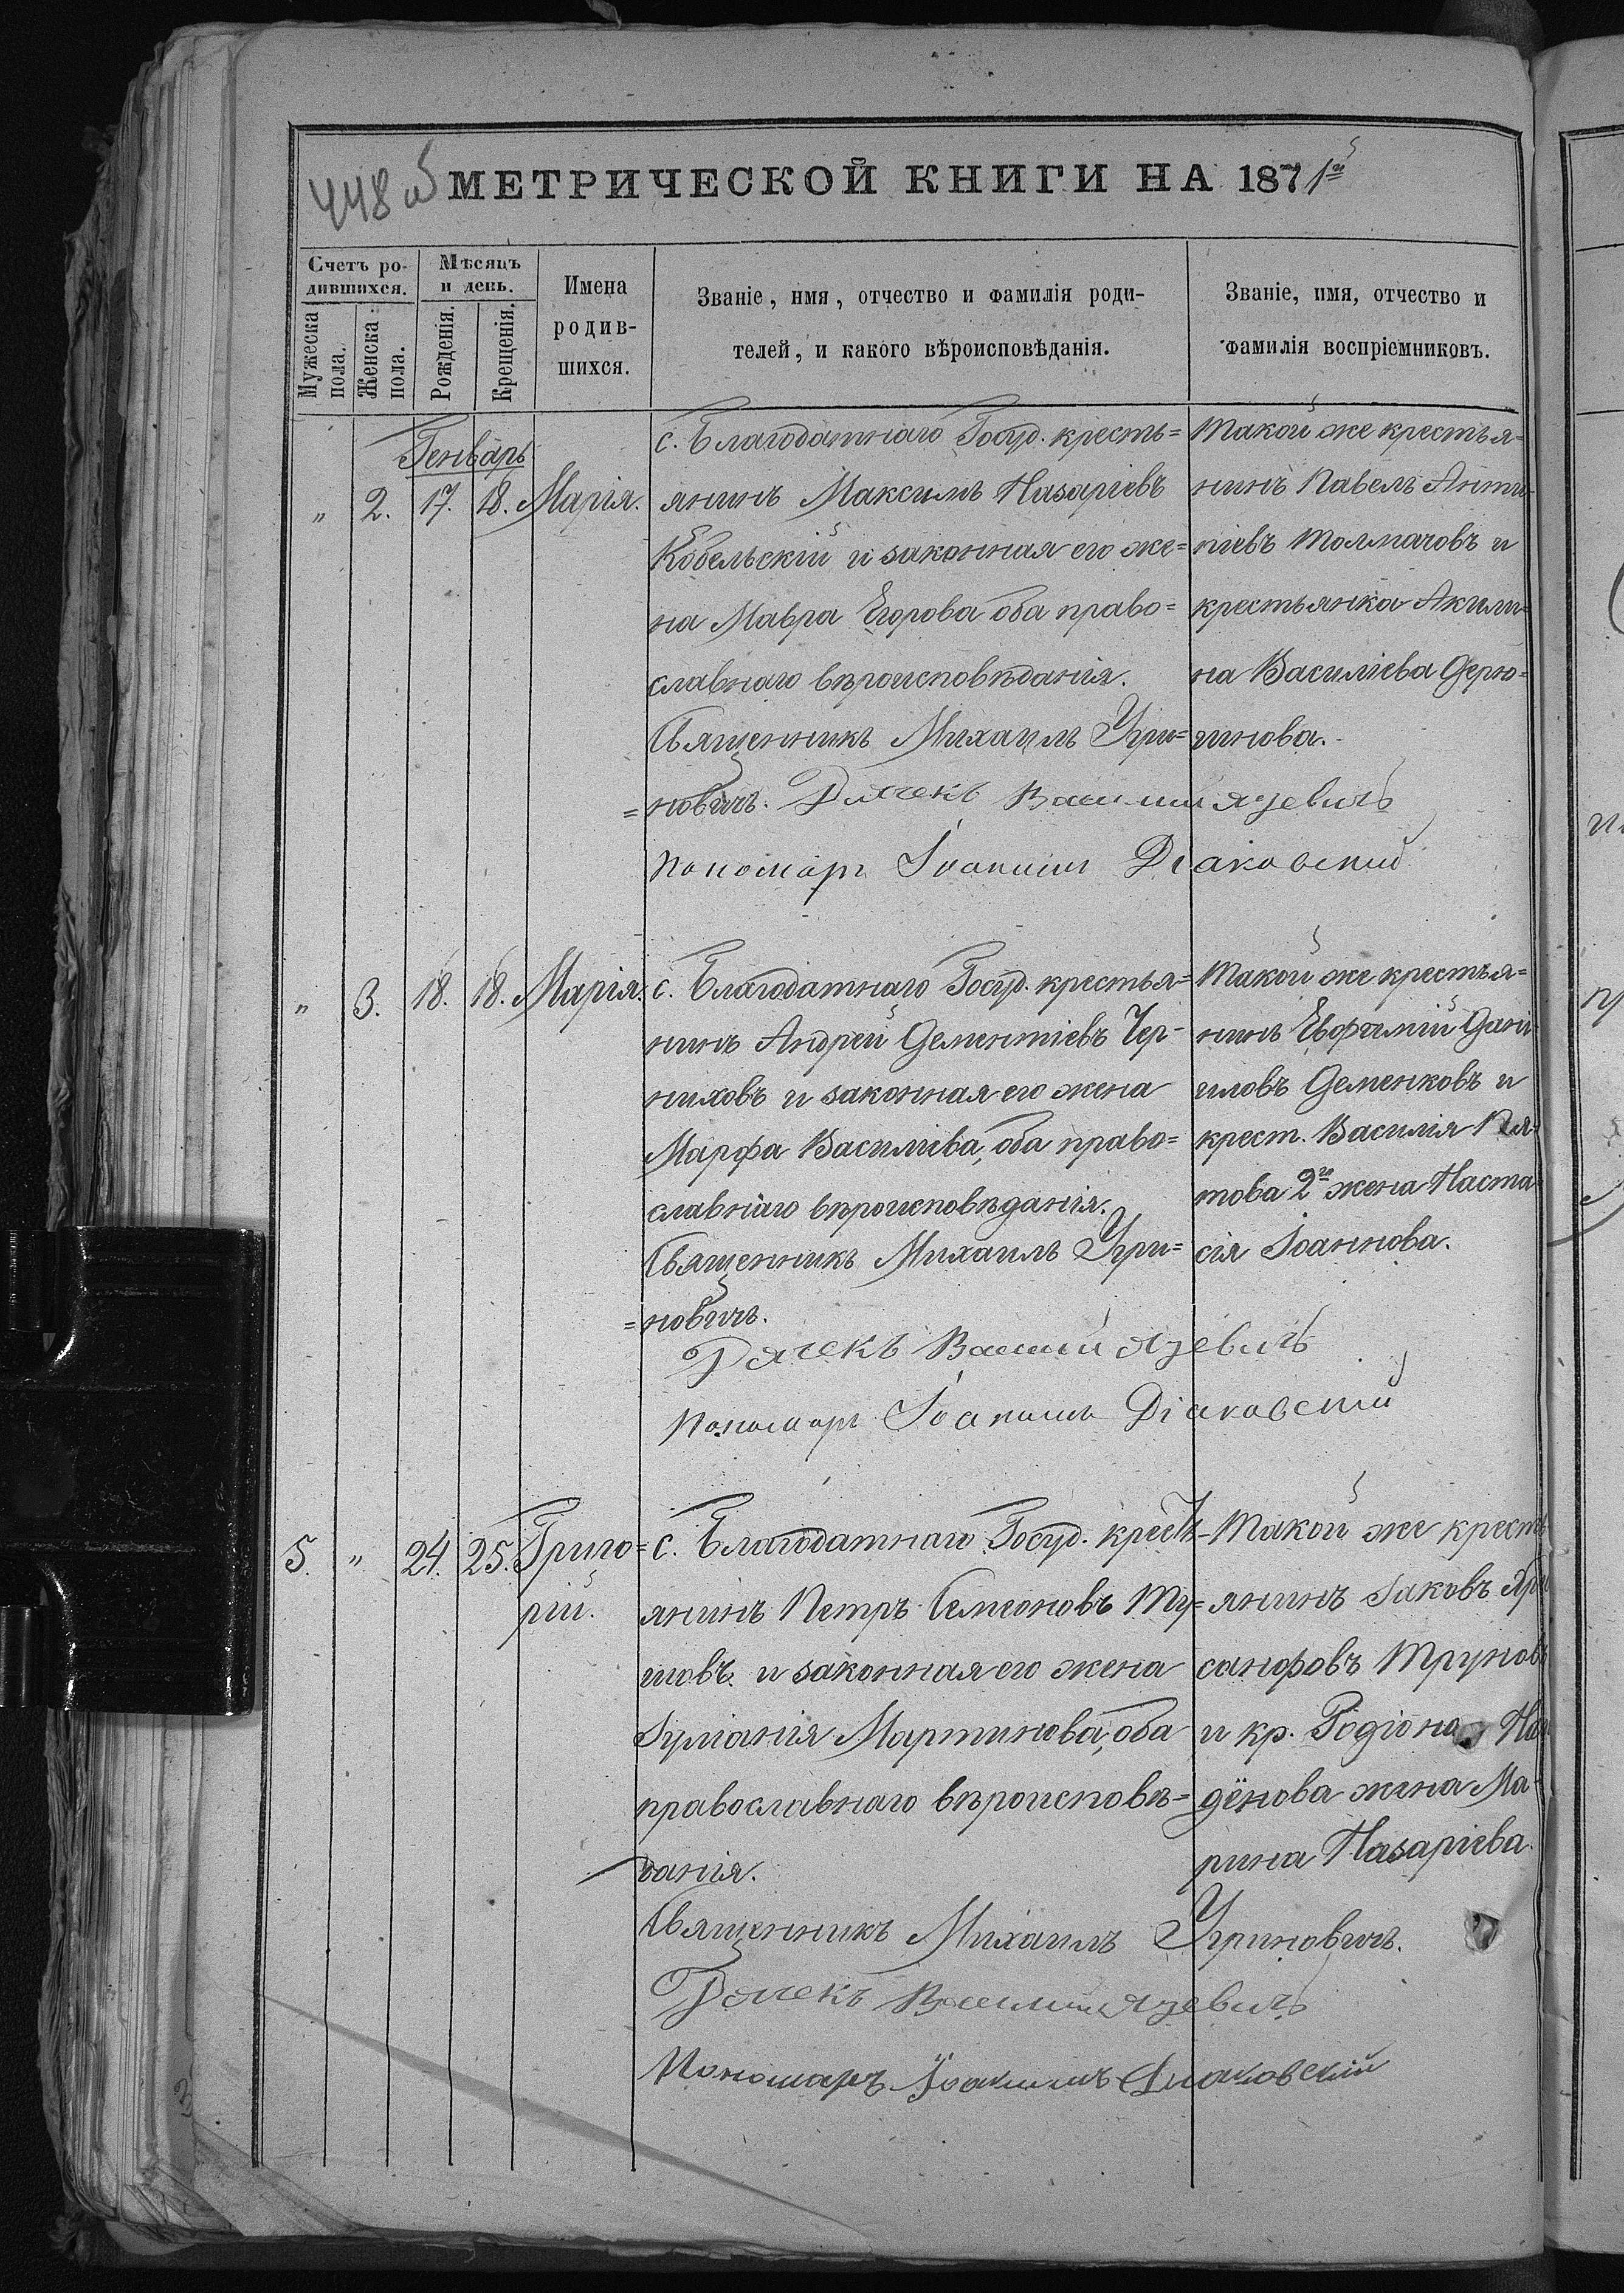 448 об
МЕТРИЧЕСКОЙ КНИГИ НА 1871й
Счетъ ро-
дившихся.
Мужеска
пола.
Женска
пола.
Мѣсяцъ
и день.
Рожденія.
Крещенія.
Имена
родив-
шихся.
Званіе, имя, отчество и фамилія роди-
телей, и какого вѣроисповѣданія.
Званіе, имя, отчество и
фамилія воспріемниковъ.
Генварь
" 2. 17. 18. Марія.
с. Благодатнаго Госуд. кресть=
янинъ Максимъ Назаріевъ
Кобельскій и законная его же=
на Мавра Егорова оба право=
славнаго вѣроисповѣданія.
Священникъ Михаилъ Угри=
=новичъ. Дячекъ Василий Язевичъ
Пономарь Іоакимъ Діаковский
Такой же крестья=
нинъ Павелъ Анти-
піевъ Толмачовъ и
крестьянка Акили=
на Василіева Дерю=
гинова.
" 3. 18. 18. Марія.
с. Благодатнаго Госуд. крестья=
нинъ Андрей Дементіевъ Чер-
ниховъ и законная его жена
Марфа Василіева, оба право=
славнаго вѣроисповѣданія.
Священникъ Михаилъ Угри=
=новичъ.
Дячекъ Василий Язевичъ
Пономарь Іоакимъ Діаковский
Такой же крестья=
нинъ Евфимій Дани
иловъ Деменковъ и
крест. Василія
това 2я жена Наста=
сія Іоаннова.
5. " 24. 25. Григо=
рій.
с. Благодатнаго Госуд. кресть-
янинъ Петръ Семеоновъ Ту=
шовъ и законная его жена
Іуліанія Мартинова, оба
православнаго вѣроисповѣ=
данія.
Священникъ Михаилъ Угриновичъ.
Дячекъ Василий Язевичъ
Пономарь Іоакимъ Диаковскій
Такой же кресть
янинъ Іаковъ Хри
санфовъ Труновъ
и кр. Родіона На
дёнова жена Ма-
рина Назаріева.